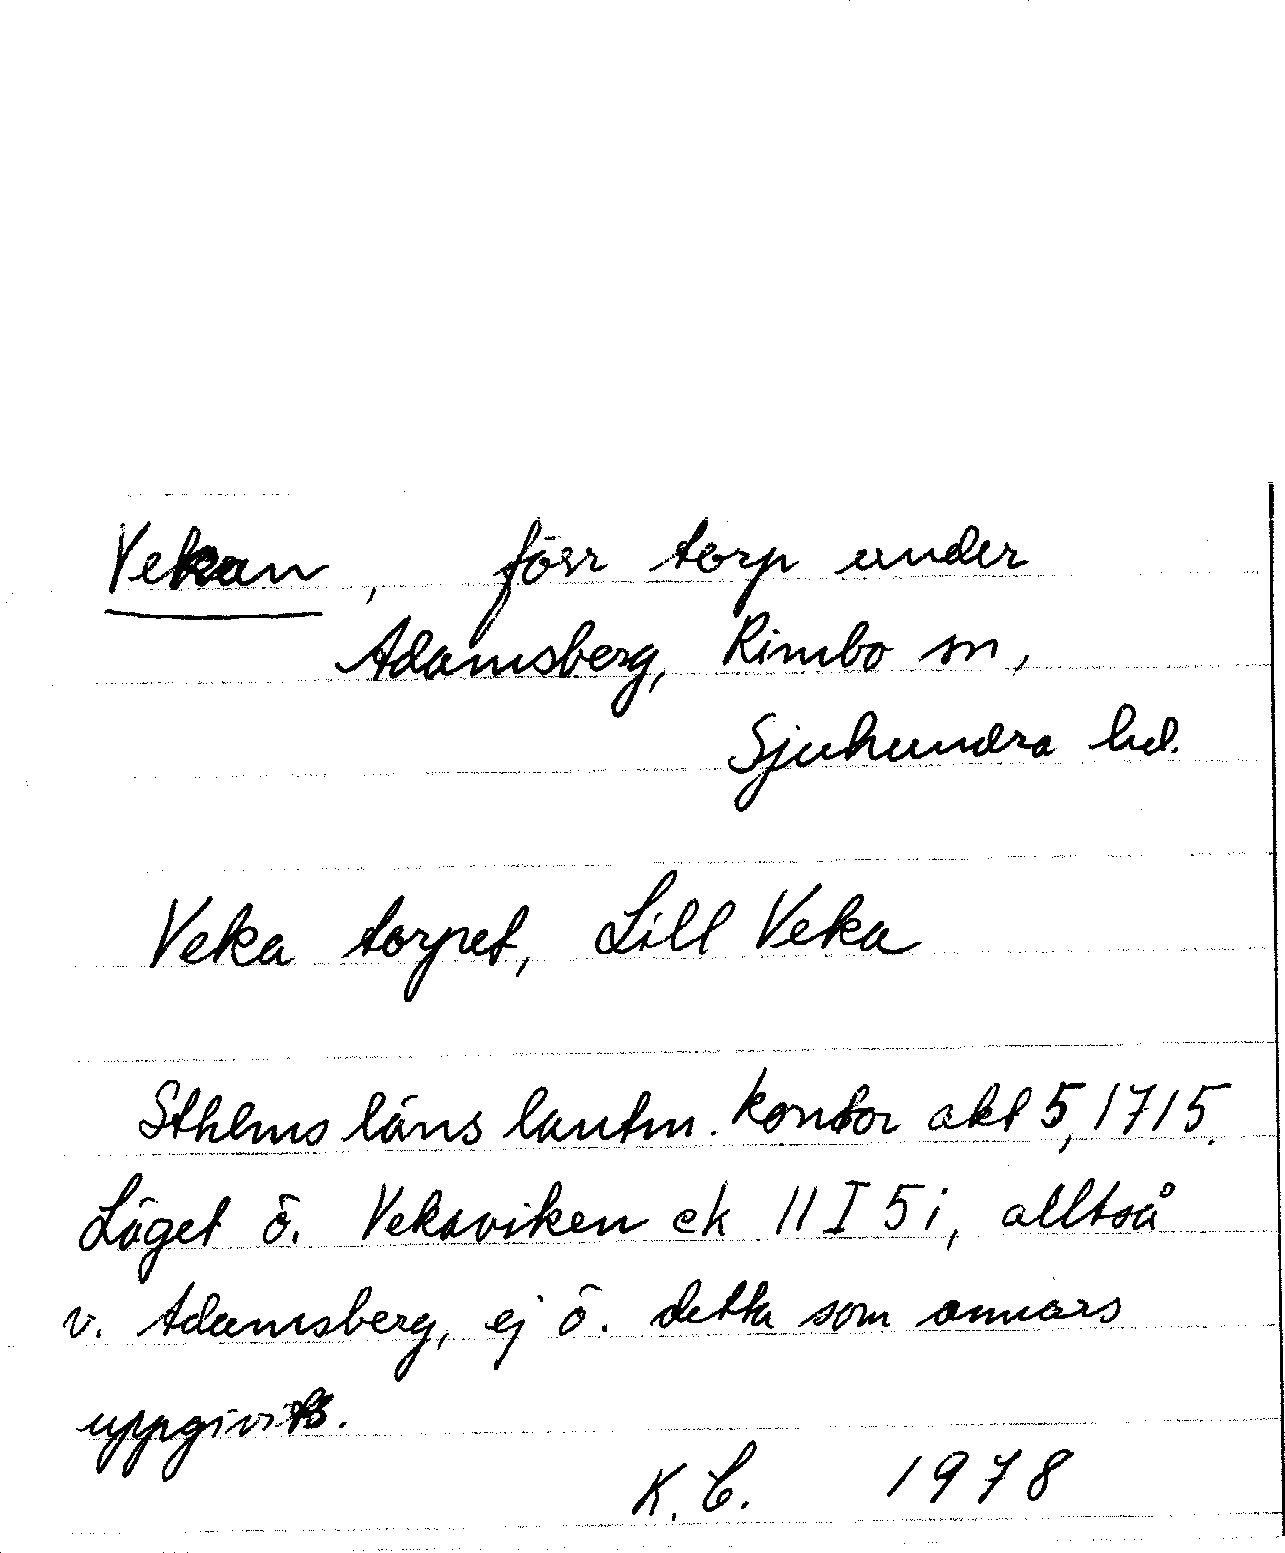 Vekan, förr torp under
Adamsberg, Rimbo sn,
Sjuhundra hd.
Veka torpet, Lill Veka
Sthlms läns lantm. kontor akt 5, 1715.
Läget ö. Vekaviken ek 11 I 5 i, alltså
v. Adamsberg, ej ö. detta som annars
uppgivits.
K. C. 1978